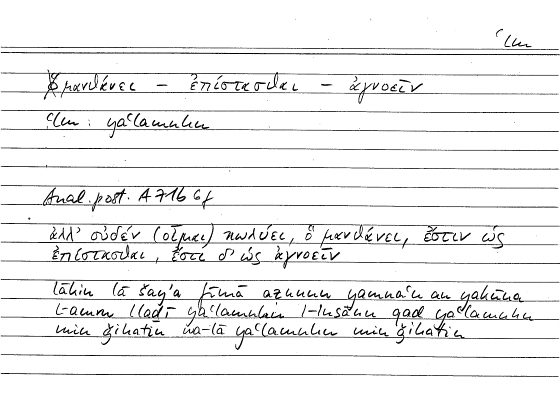 ʿlm
μανθάνει – ἐπίστασθαι – ἀγνοεῖν
ʿlm : yaʿlamuhu
Anal. post. A 71 b 6f
ἀλλ' οὐδέν (οἶμαι) κωλύει, ὃ μανθάνει, ἔστιν ὡς
ἐπίστασθαι, ἔστι δ' ὡς ἀγνοεῖν
lākin lā šayʾa fīmā aẓunnu yamnaʿu an yakūna
l-amru lladī yaʿlamuhu l-insānu qad yaʿlamuhu
min ǧihatin wa-lā yaʿlamuhu min ǧihatin